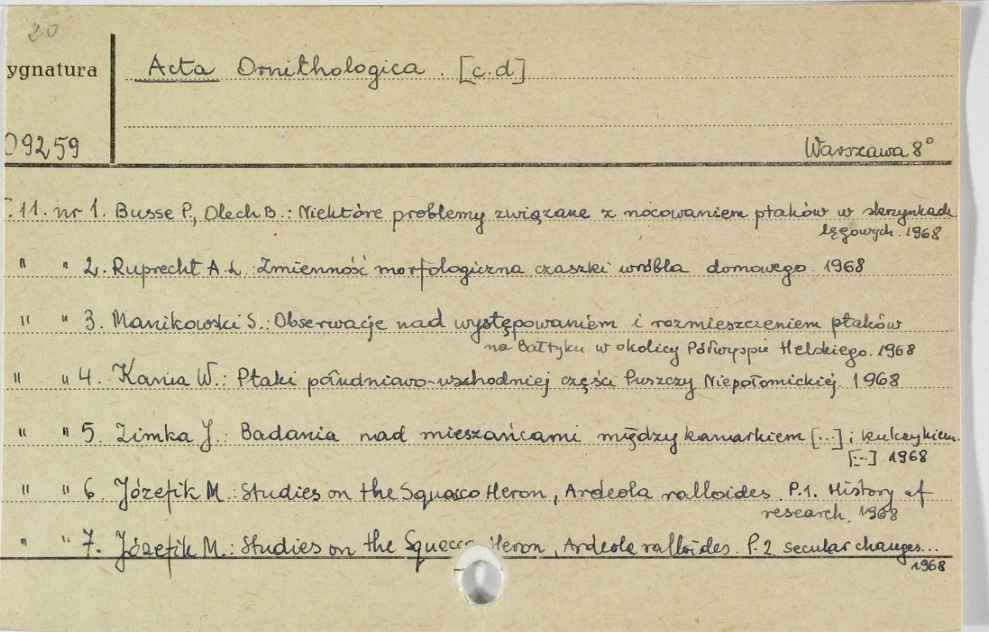 20
ygnatura
Acta Ornithologica. [c.d]
09259
Warszawa 8°
T. 11. nr 1. Busse P., Olech B.: Niektóre problemy związane z nocowaniem ptaków w skrzynkach
lęgowych. 1968
" " 2. Ruprecht A.L.: Zmienność morfologiczna czaszki wróbla domowego. 1968
" " 3. Manikowski S.: Obserwacje nad występowaniem i rozmieszczeniem ptaków
na Bałtyku w okolicy Półwyspie Helskiego. 1968
" " 4. Kania W.: Ptaki południowo-wschodniej części Puszczy Niepołomickiej. 1968
" " 5. Zimka J.: Badania nad mieszańcami między kanarkiem [...] i kulczykiem
[...] 1968
" " 6. Józefik M.: Studies on the Squacco Heron, Ardeola ralloides. P.1. History of
research. 1968
" " 7. Józefik M.: Studies on the Squacco Heron, Ardeola ralloides. P.2 secular changes...
1968